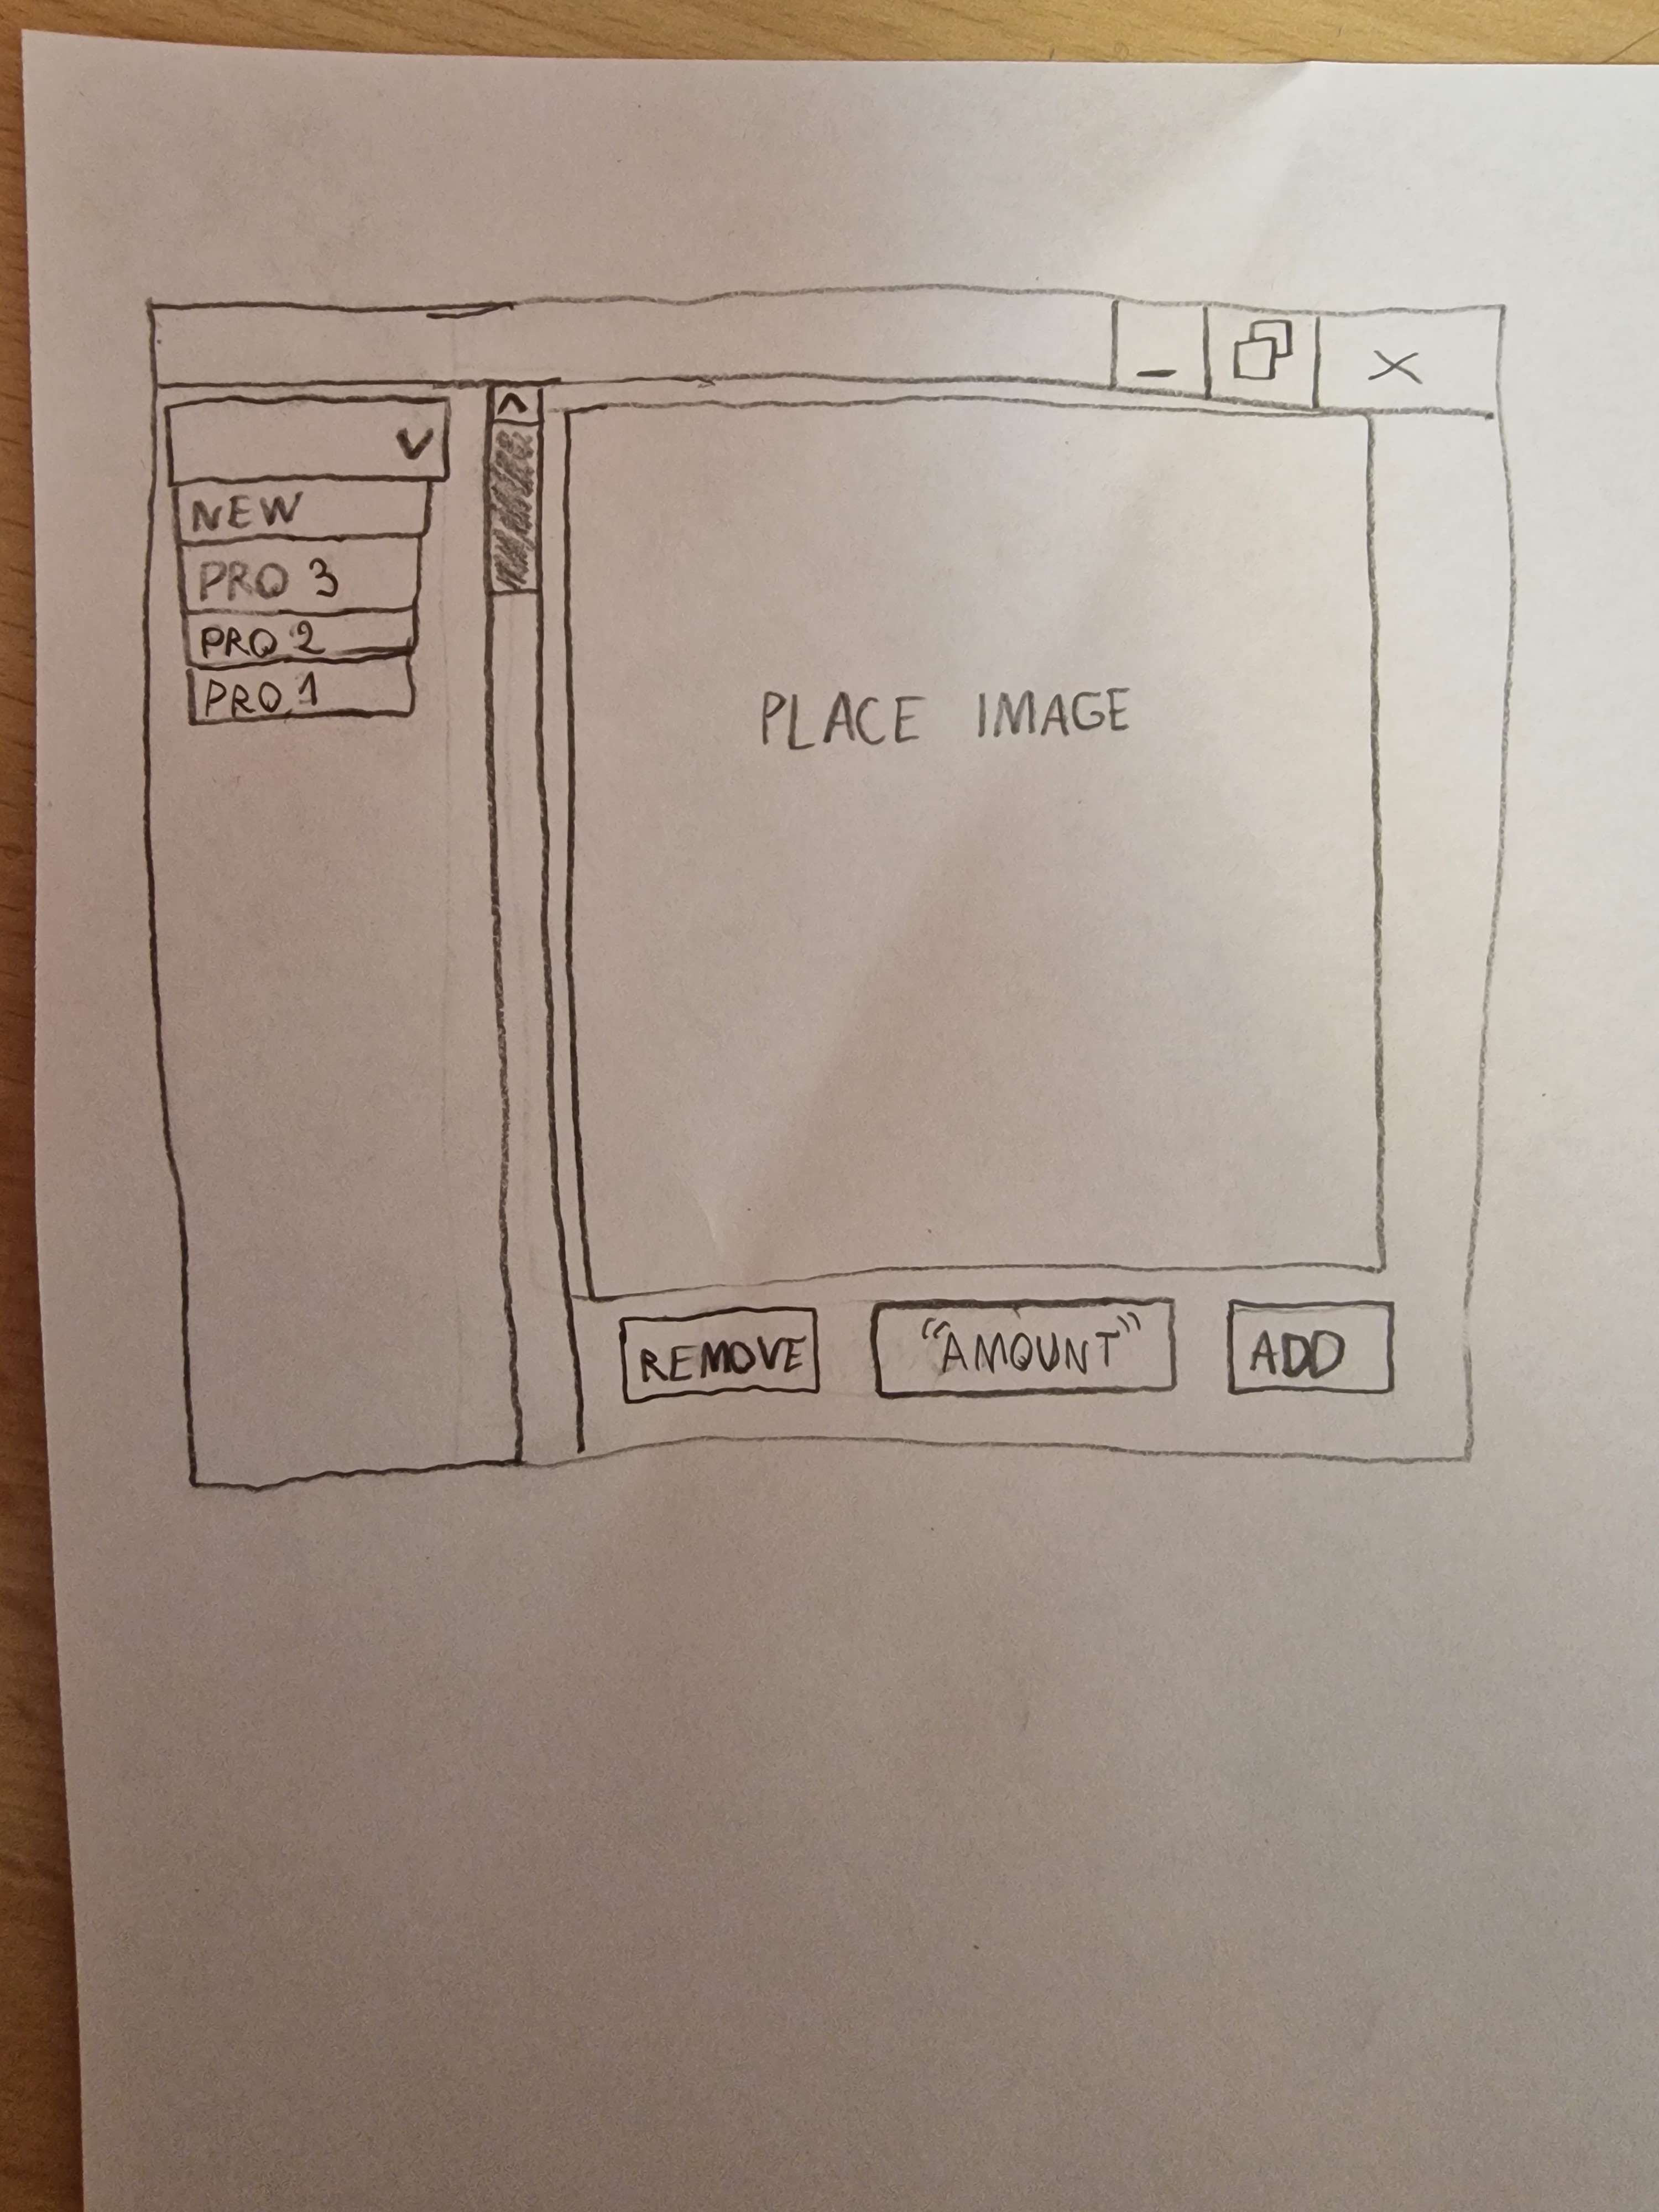 NEW
PRO 3
PRO 2
PRO 1
PLACE IMAGE
REMOVE
“AMOUNT”
ADD